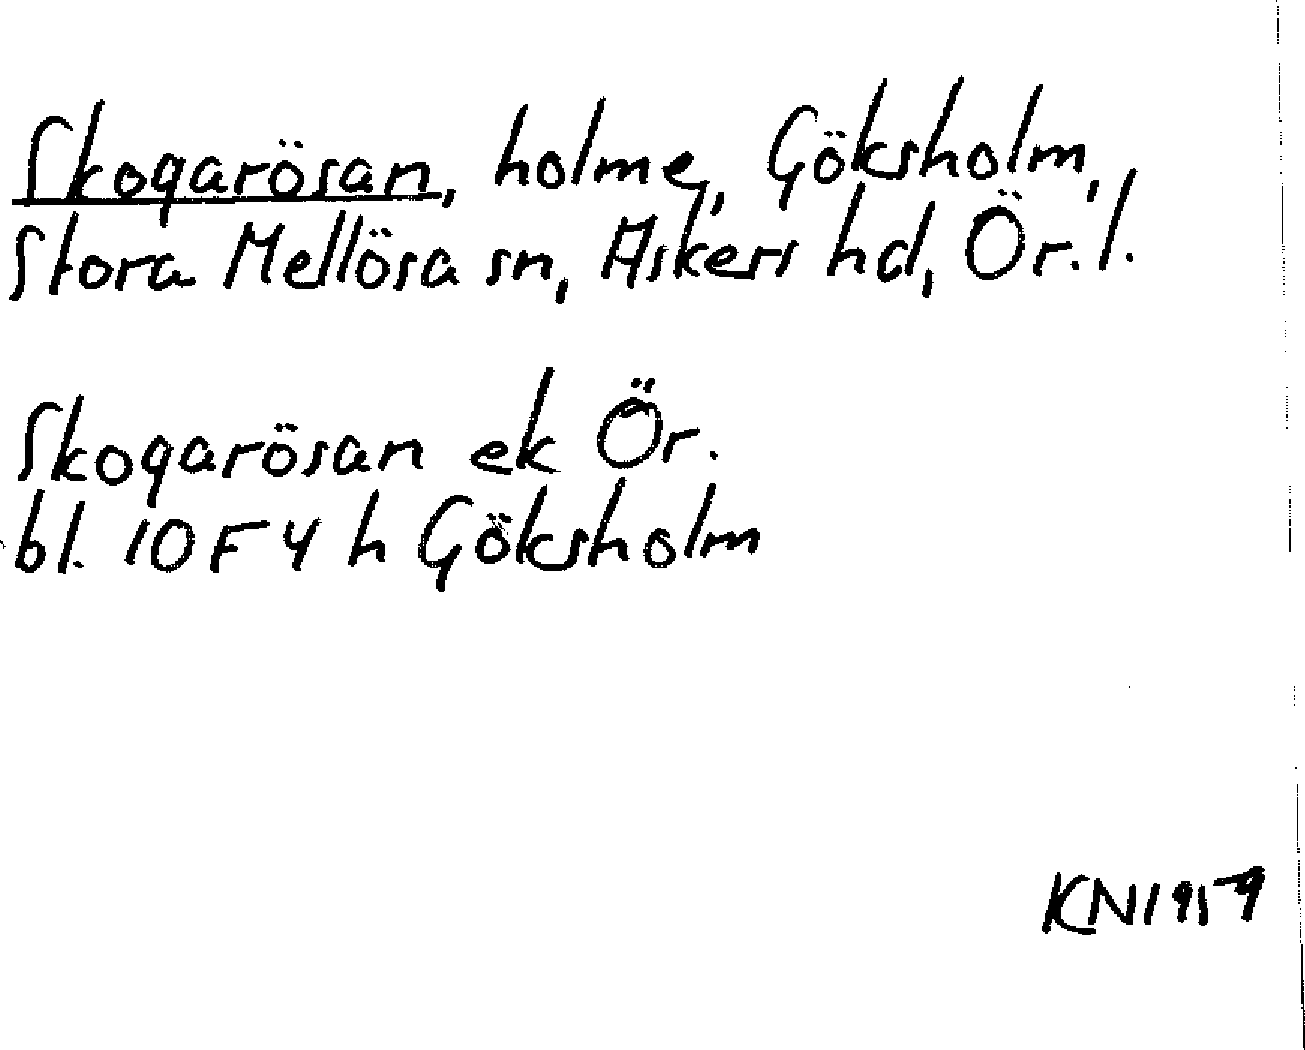 Skogarösan, holme, Göksholm,
Stora Mellösa sn, Askers hd, Ör. l.
Skogarösan ek Ör.
bl. 10 F 4 h Göksholm
KN 1959